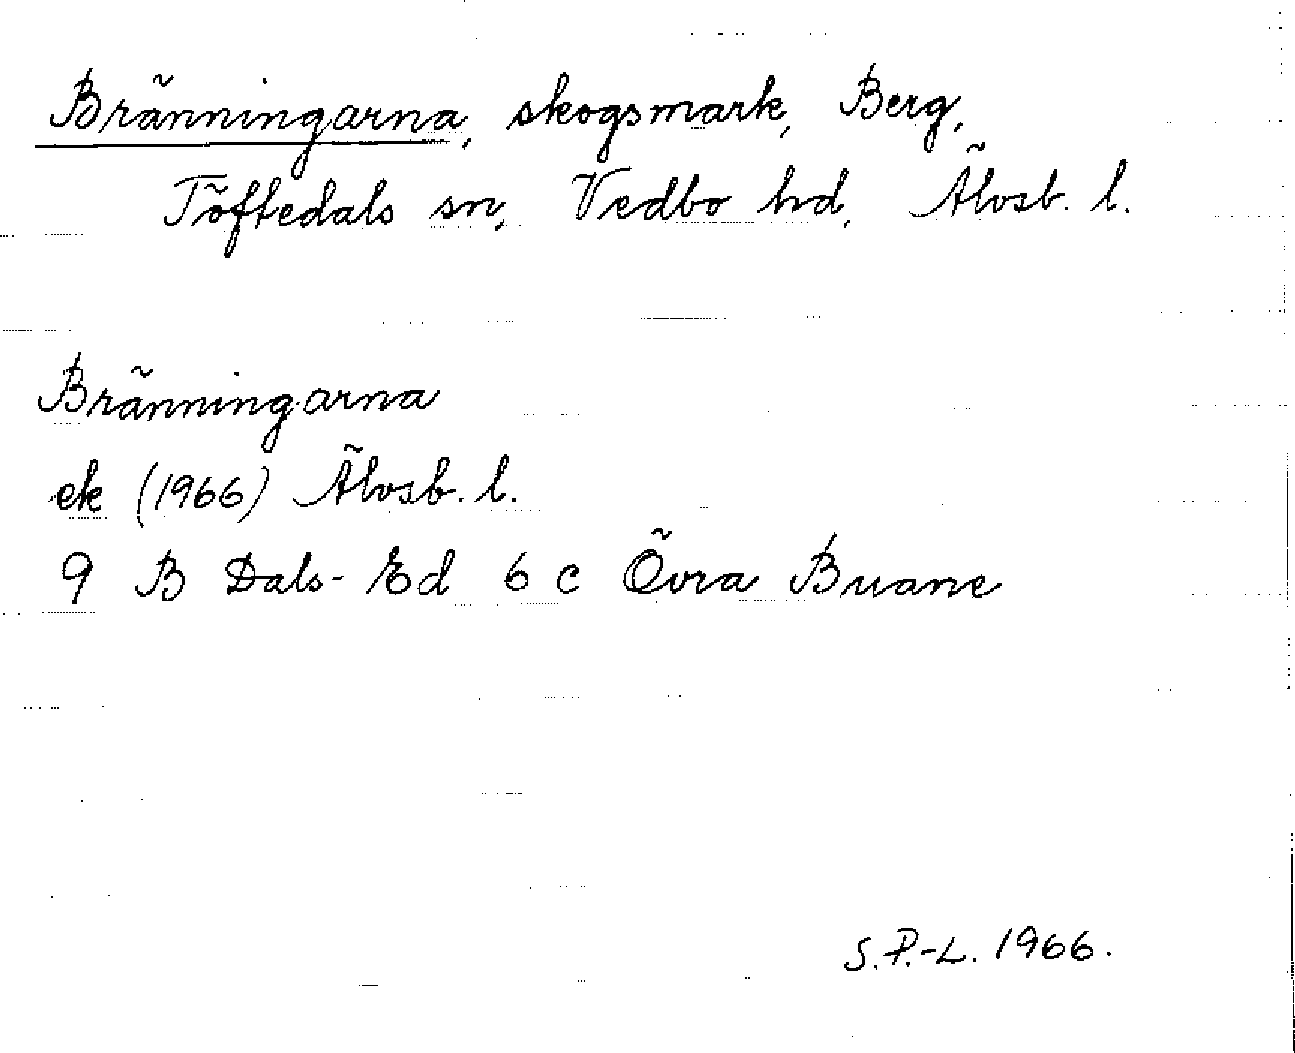 Bränningarna, skogsmark, Berg,
Töftedals sn, Vedbo hd, Älvsb. l.
Bränningarna
ek (1966) Älvsb. l.
9 B Dals-Ed 6 c Övra Buane
S.P.-L. 1966.